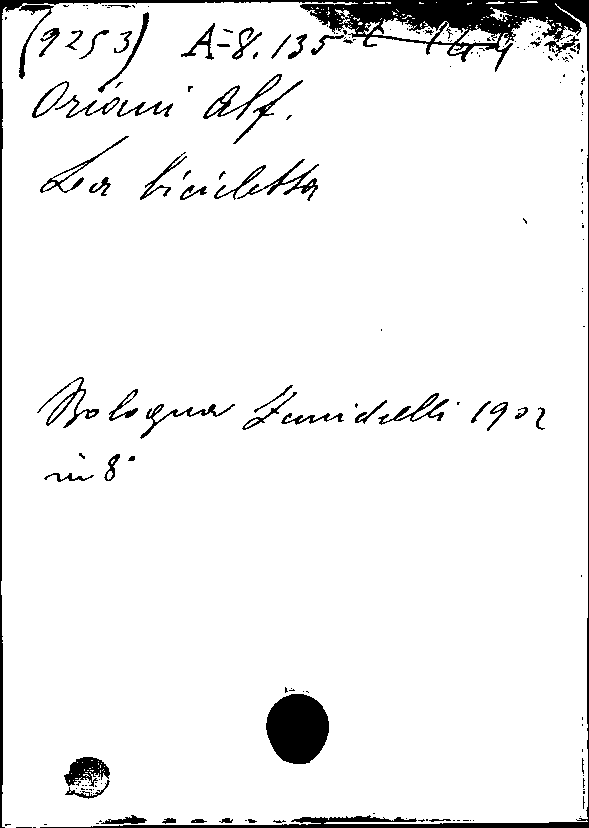 (9253) A-8.135
Oriani Alf.
La bicicletta
Bologna Zanichelli 1902
in 8°